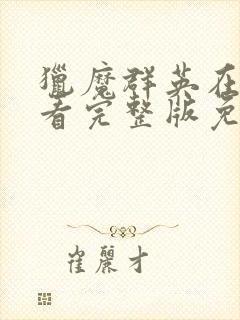 獵魔群英在
看完整版免
崔麗才